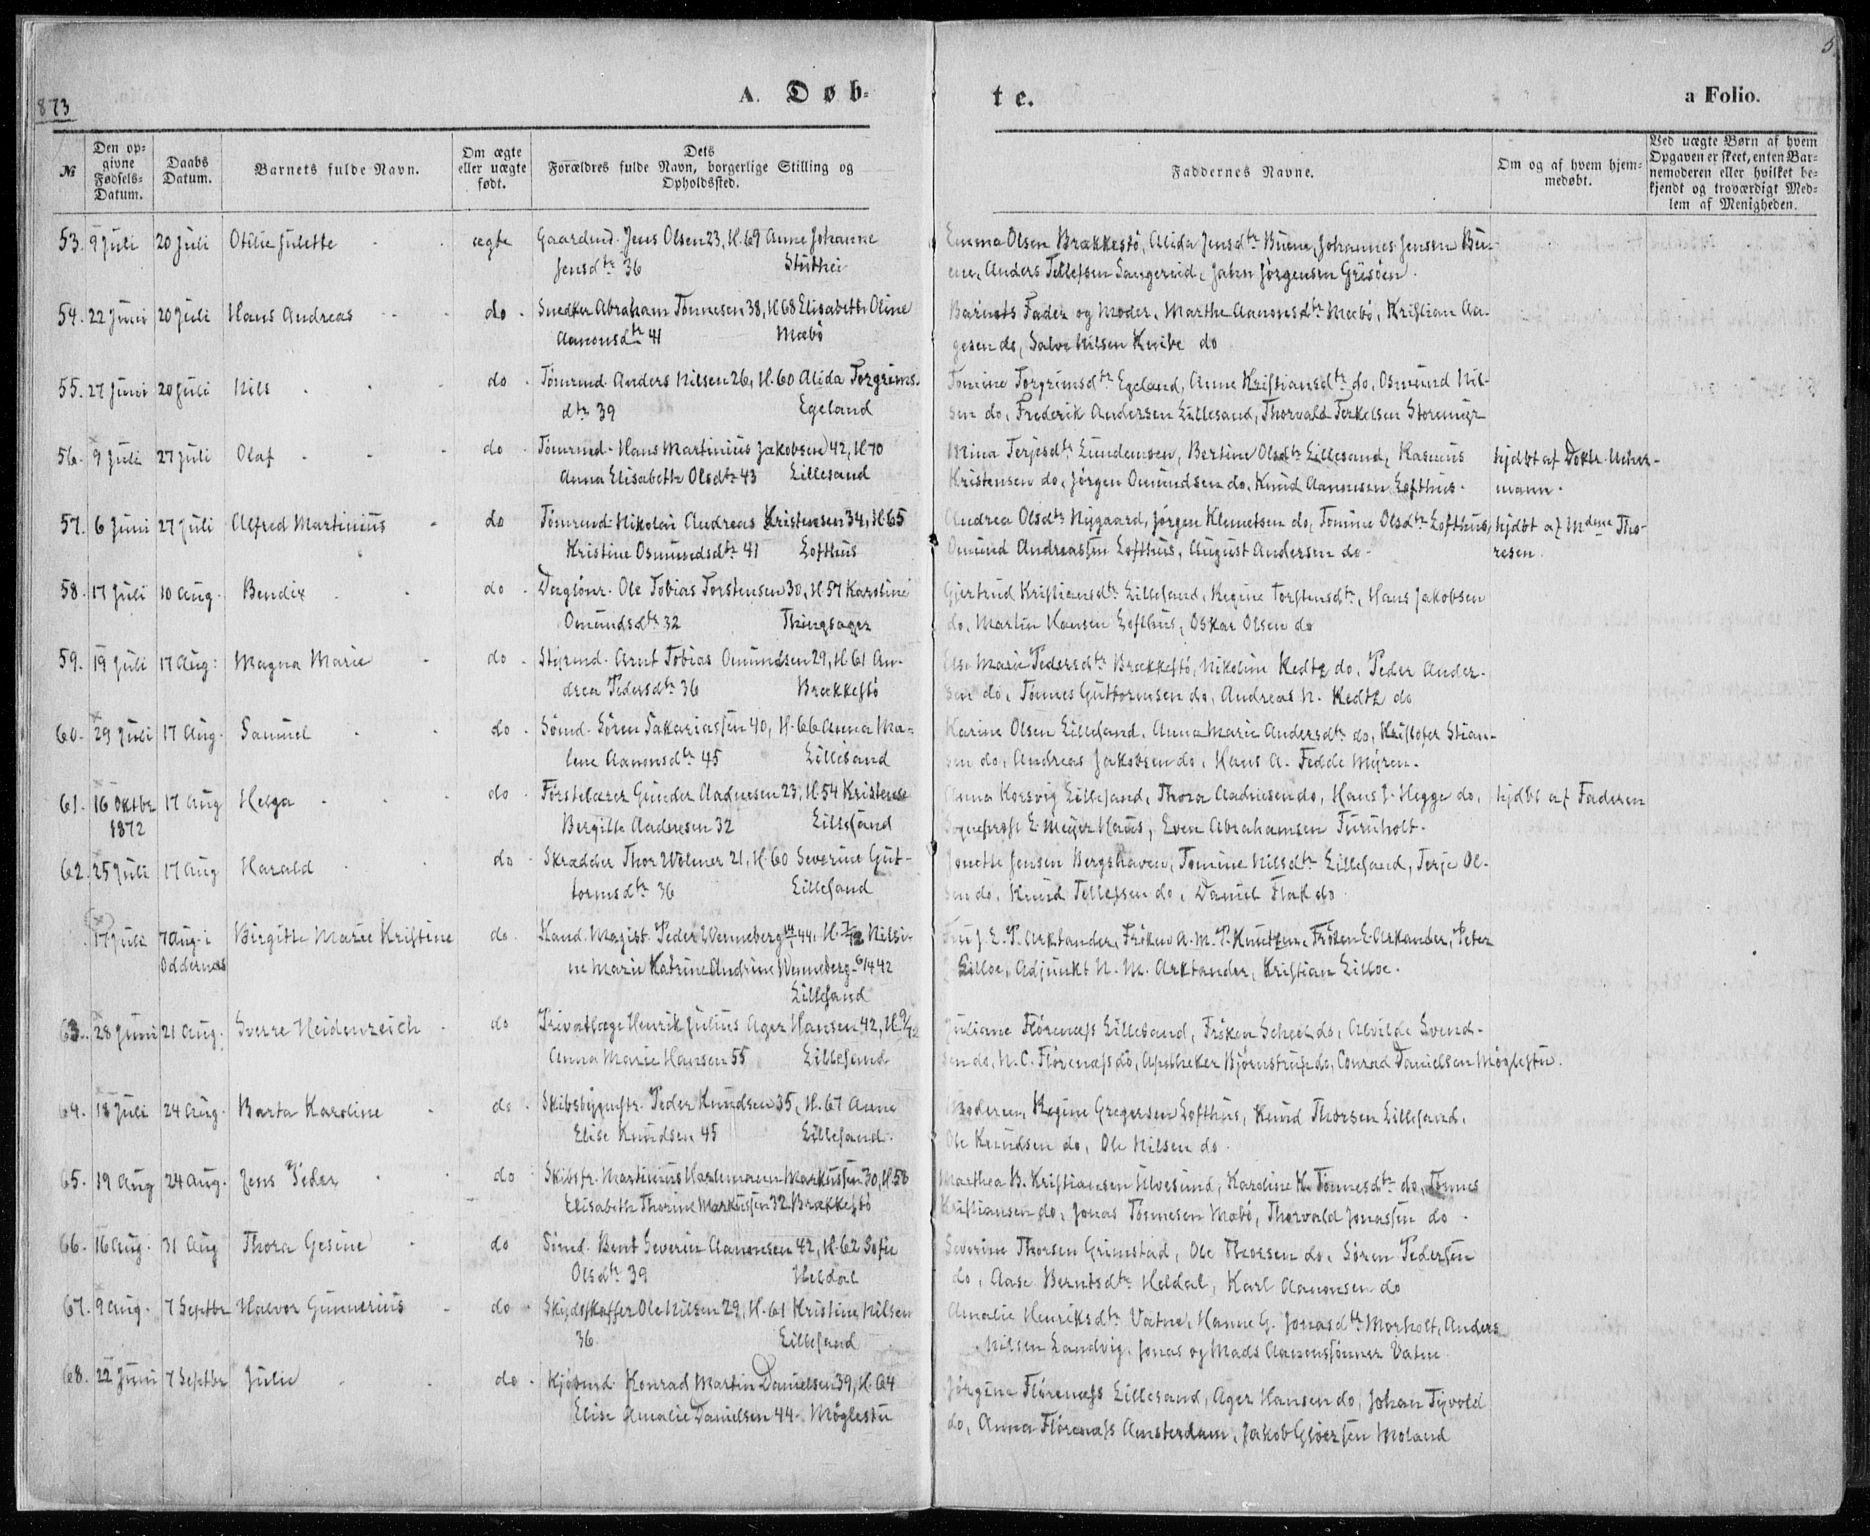 5
873
A. Døb-
te.
a Folio.
№
Den opgivne Fødsels-Datum.
Daabs Datum.
Barnets fulde Navn.
Om ægte eller uægte født.
Dets Forældres fulde Navn, borgerlige Stilling og Opholdssted.
Faddernes Navne.
Om og af hvem hjemmedøbt.
Ved uægte Børn af hvem Opgaven er skeet, enten Barnemoderen eller hvilket bekjendt og troværdigt Medlem af Menigheden.
53. 9 Juli 20 Juli Otilie Juliette ægte Gaardmd. Jens Olsen 23, H. 69 Anne Johanne
Jensdtr 36 Stuthei
Emma Olsen Brækkestø, Alida Jensdtr Buene, Johannes Jensen Bu-
ene, Anders Tellefsen Sangereid, John Jørgensen Grisöen.
54. 22 Juni 20 Juli Hans Andreas do. Snedker Abraham Tønnesen 38, H 68 Elisabeth Oline
Aanonsdtr 41 Mæbø
Barnets Fader og Moder, Marthe Aanonsdtr Mæbø, Kristian Aa-
gesen do, Salve Nilsen Knibe do
55. 27 Juni 20 Juli Nils do Tømrmd. Anders Nilsen 26, H. 60 Alida Torgrims-
dtr 39 Egeland
Tomine Torgrimsdtr Egeland, Anne Kristiansdtr do, Osmund Nil-
sen do, Frederik Andersen Lillesand, Thorvald Terkelsen Storemyr
56. 9 Juli 27 Juli Olaf do Tømrmd. Hans Martinius Jakobsen 42, H 70
Anna Elisabeth Olsdtr 43 Lillesand
Mina Terjesdtr Lundemoen, Bertine Olsdtr Lillesand, Rasmus
Kristensen do, Jørgen Omundsen do, Knud Aanonsen Lofthus.
hjdbt af Doktr. Ucher-
mann.
57. 6 Juni 27 Juli Alfred Martinius do Tømrmd. Nikolai Andreas Kristensen 34, H 65
Kristine Osmundsdtr 41 Lofthus
Andrea Olsdtr Nygaard, Jørgen Klemetsen do, Tomine Olsdtr Lofthus,
Omund Andreassen Lofthus, August Andersen do.
hjdbt af Mdme Tho-
resen.
58. 17 Juli 10 Aug. Bendix do. Daglønr. Ole Tobias Torstensen 30, H 57 Karoline
Omundsdtr 32 Thingsager
Gjertrud Kristiansdtr Lillesand, Regine Torstensdtr, Hans Jakobsen
do, Martin Hansen Lofthus, Oskar Olsen do
59. 19 Juli 17 Aug. Magna Marie do. Styrmd. Arnt Tobias Omundsen 29, H 61 An-
drea Pedersdtr 36 Brækkestø
Else Marie Pedersdtr Brækkestø, Nikoline Kedtz do, Peder Ander-
sen do, Tønnes Guttormsen do, Andreas N. Kedtz do
60. 29 Juli 17 Aug. Samuel do. Sømd. Søren Sakariassen 40, H. 66 Anna Ma-
lene Aanonsdtr 45 Lillesand
Karine Olsen Lillesand, Anna Marie Andersdtr do, Kristofer Stian-
sen do, Andreas Jakobsen do, Hans A. Fedde Myren.
61. 16 Oktbr 17 Aug Helga do. Førstelærer Gunder Aadnesen 23, H 54 Kristense
1872 Bergitte Aadnesen 32 Lillesand
Anna Korsvig Lillesand, Thora Aadnesen do, Hans J. Hegge do,
Sognepræst E. Meyer Haus, Even Abrahamsen Furuholt.
hjdbt af Faderen
62. 25 Juli 17 Aug Harald do. Skrædder Thor Wolmer 21, H. 60 Severine Gut-
tormsdtr 36 Lillesand
Jonette Jensen Bergshaven, Tomine Nilsdtr Lillesand, Terje Ol-
sen do, Knud Tellefsen do, Daniel Flak do
17 Juli 7 Aug. i Birgitte Marie Kristine do. Kand. Magist. Peder Wenneberg 44. H. 72 Nilsi-
Oddernes ne Marie Katrine Andrine Wenneberg 42
Lillesand
Fru J. E. P. Arktander, Frøken A. M. P. Knutzen, Frøken E. Arktander, Peter
Lilloe, Adjunkt N. M. Arktander, Kristian Lilloe.
63. 28 Juni 21 Aug. Sverre Heidenreich do Privatlæge Henrik Julius Ager Hansen 42, H. 9/72
Anna Marie Hansen 55 Lillesand
Juliane Flørenæss Lillesand, Frøken Scheel do, Alvilde Svend-
sen do, N. C. Flørenæss do, Apotheker Bjørnstrup do, Conrad Danielsen Møglestu.
64. 18 Juli 24 Aug. Barta Karoline do. Skibsbygmstr. Peder Knudsen 35, H. 67 Anne
Elise Knudsen 45 Lillesand.
Moderen, Regine Gregersen Lofthus, Knud Thorsen Lillesand,
Ole Knudsen do, Ole Nilsen do.
65. 19 Aug 24 Aug. Jens Peder do Skibsfr. Martinius Hartmann Markussen 30, H. 58
Elisabeth Thorine Markussen 32. Brækkestø
Marthea B. Kristiansen Ulvesund, Karoline K. Tønnesdtr do, Tønnes
Kristiansen do, Jonas Tønnesen Mæbø, Thorvald Jonassen do.
66. 16 Aug. 31 Aug Thora Gesine do Sømd. Bent Severin Aanonsen 42, H. 62 Sofie
Olsdtr 39 Heldal
Severine Thorsen Grimstad, Ole Thorsen do, Søren Pedersen
do, Aase Berntsdtr Heldal, Karl Aanonsen do
67. 9 Aug. 7 Septbr Halvor Gunnerius do. Skydsskaffer Ole Nilsen 29, H. 61 Kristine Nilsen
36. Lillesand
Amalie Henriksdtr Vatne, Hanne G. Jonasdtr Morholt, Anders
Nilsen Landvig, Jonas og Mads Aanonssønner Vatne.
68. 22 Juni 7 Septbr Julie do. Kjøbmd. Konrad Martin Danielsen 39, H. 64
Elise Amalie Danielsen 44. Møglestu
Jørgine Flørenæss Lillesand, Ager Hansen do, Johan Tyvold
do, Anna Flørenæss Amsterdam, Jakob Gjøersen Moland